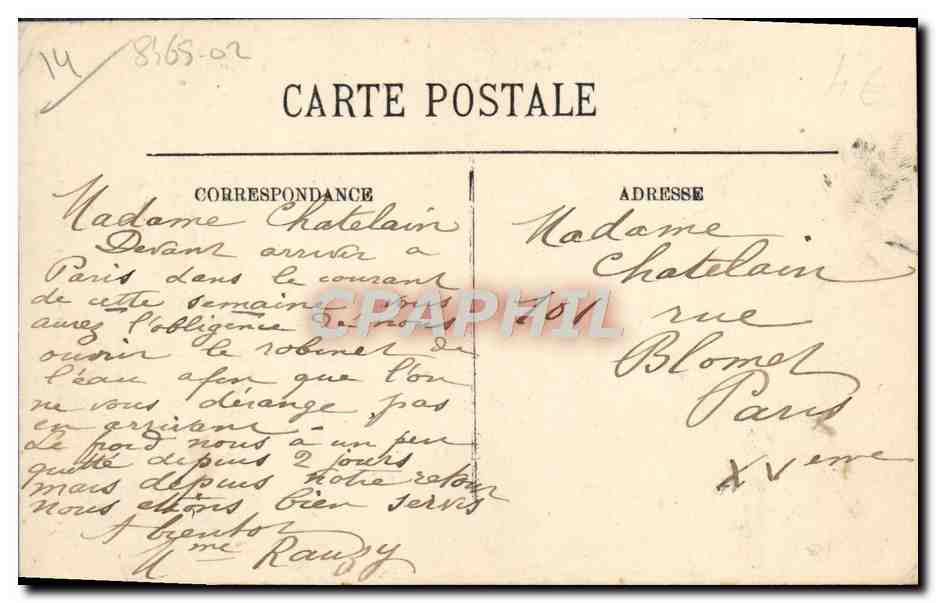 14
8365-02
4€
CARTE POSTALE
CORRESPONDANCE
Madame Chatelain
Devant arriver a
Paris dans le courant
de cette semaine vous
aurez l'obligence de nous
ouvrir le robinet de
l'eau afin que l'on
ne vous dérange pas
en arrivant
Le froid nous à un peu
quitté depuis 2 jours
mais depuis notre retour
nous etions bien servis
A bientot
Mme Rauzy
ADRESSE
Madame
Chatelain
101 rue
Blomet
Paris
XVeme
CPAPHIL